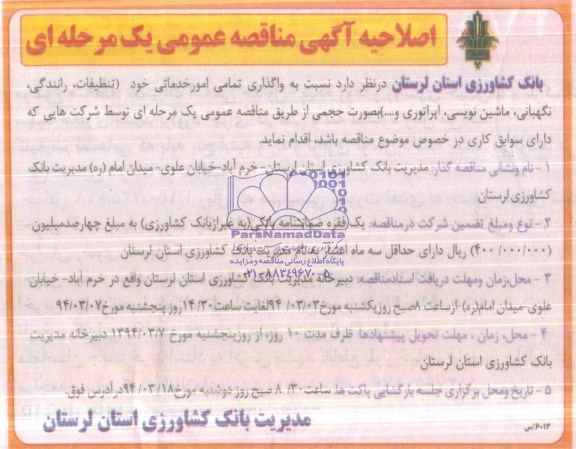 اصلاحیه آگهی مناقصه عمومی یک مرحله ای
بانک کشاورزی استان لرستان درنظر دارد نسبت به واگذاری تمامی امورخدماتی خود (تنظیفات، رانندگی،
نگهبانی، ماشین نویسی، اپراتوری و....)بصورت حجمی از طریق مناقصه عمومی یک مرحله ای توسط شرکت هایی که
دارای سوابق کاری در خصوص موضوع مناقصه باشد، اقدام نماید.
۱ - نام ونشانی مناقصه گذار: مدیریت بانک کشاورزی استان لرستان - خرم آباد-خیابان علوی- میدان امام (ره) مدیریت بانک
کشاورزی لرستان
۲ - نوع ومبلغ تضمین شرکت درمناقصه: یک فقره ضمانتنامه بانکی (به غیرازبانک کشاورزی) به مبلغ چهارصدمیلیون
(۴۰۰/۰۰۰/۰۰۰) ریال دارای حداقل سه ماه اعتبار به نام مدیریت بانک کشاورزی استان لرستان
۳ - محل،زمان ومهلت دریافت اسنادمناقصه: دبیرخانه مدیریت بانک کشاورزی استان لرستان واقع در خرم آباد- خیابان
علوی-میدان امام(ره) ازساعت ۸صبح روزیکشنبه مورخ ۹۴/۰۳/۰۳ لغایت ساعت۱۴/۳۰روز پنجشنبه مورخ۹۴/۰۳/۰۷
۴ - محل، زمان ، مهلت تحویل پیشنهادها: ظرف مدت ۱۰ روزه از روزپنجشنبه مورخ ۱۳۹۴/۰۳/۷ دبیرخانه مدیریت
بانک کشاورزی استان لرستان
۵ - تاریخ ومحل برگزاری جلسه بازگشایی پاکت ها: ساعت۸/۳۰ صبح روز دوشنبه مورخ۹۴/۰۳/۱۸درآدرس فوق
مدیریت بانک کشاورزی استان لرستان
۶۰۱۳/س
ParsNamadData
پایگاه اطلاع رسانی مناقصه و مزایده
۰۲۱-۸۸۳۴۹۶۷۰-۵